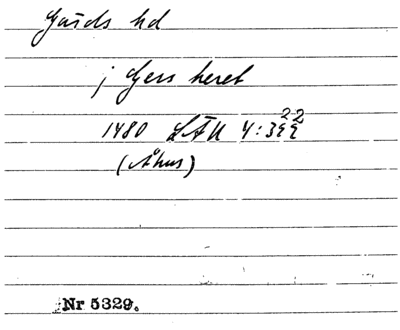 Gärds hd
j Gers heret
1480 LÄU 4:322
(Åhus)
Nr 5329.